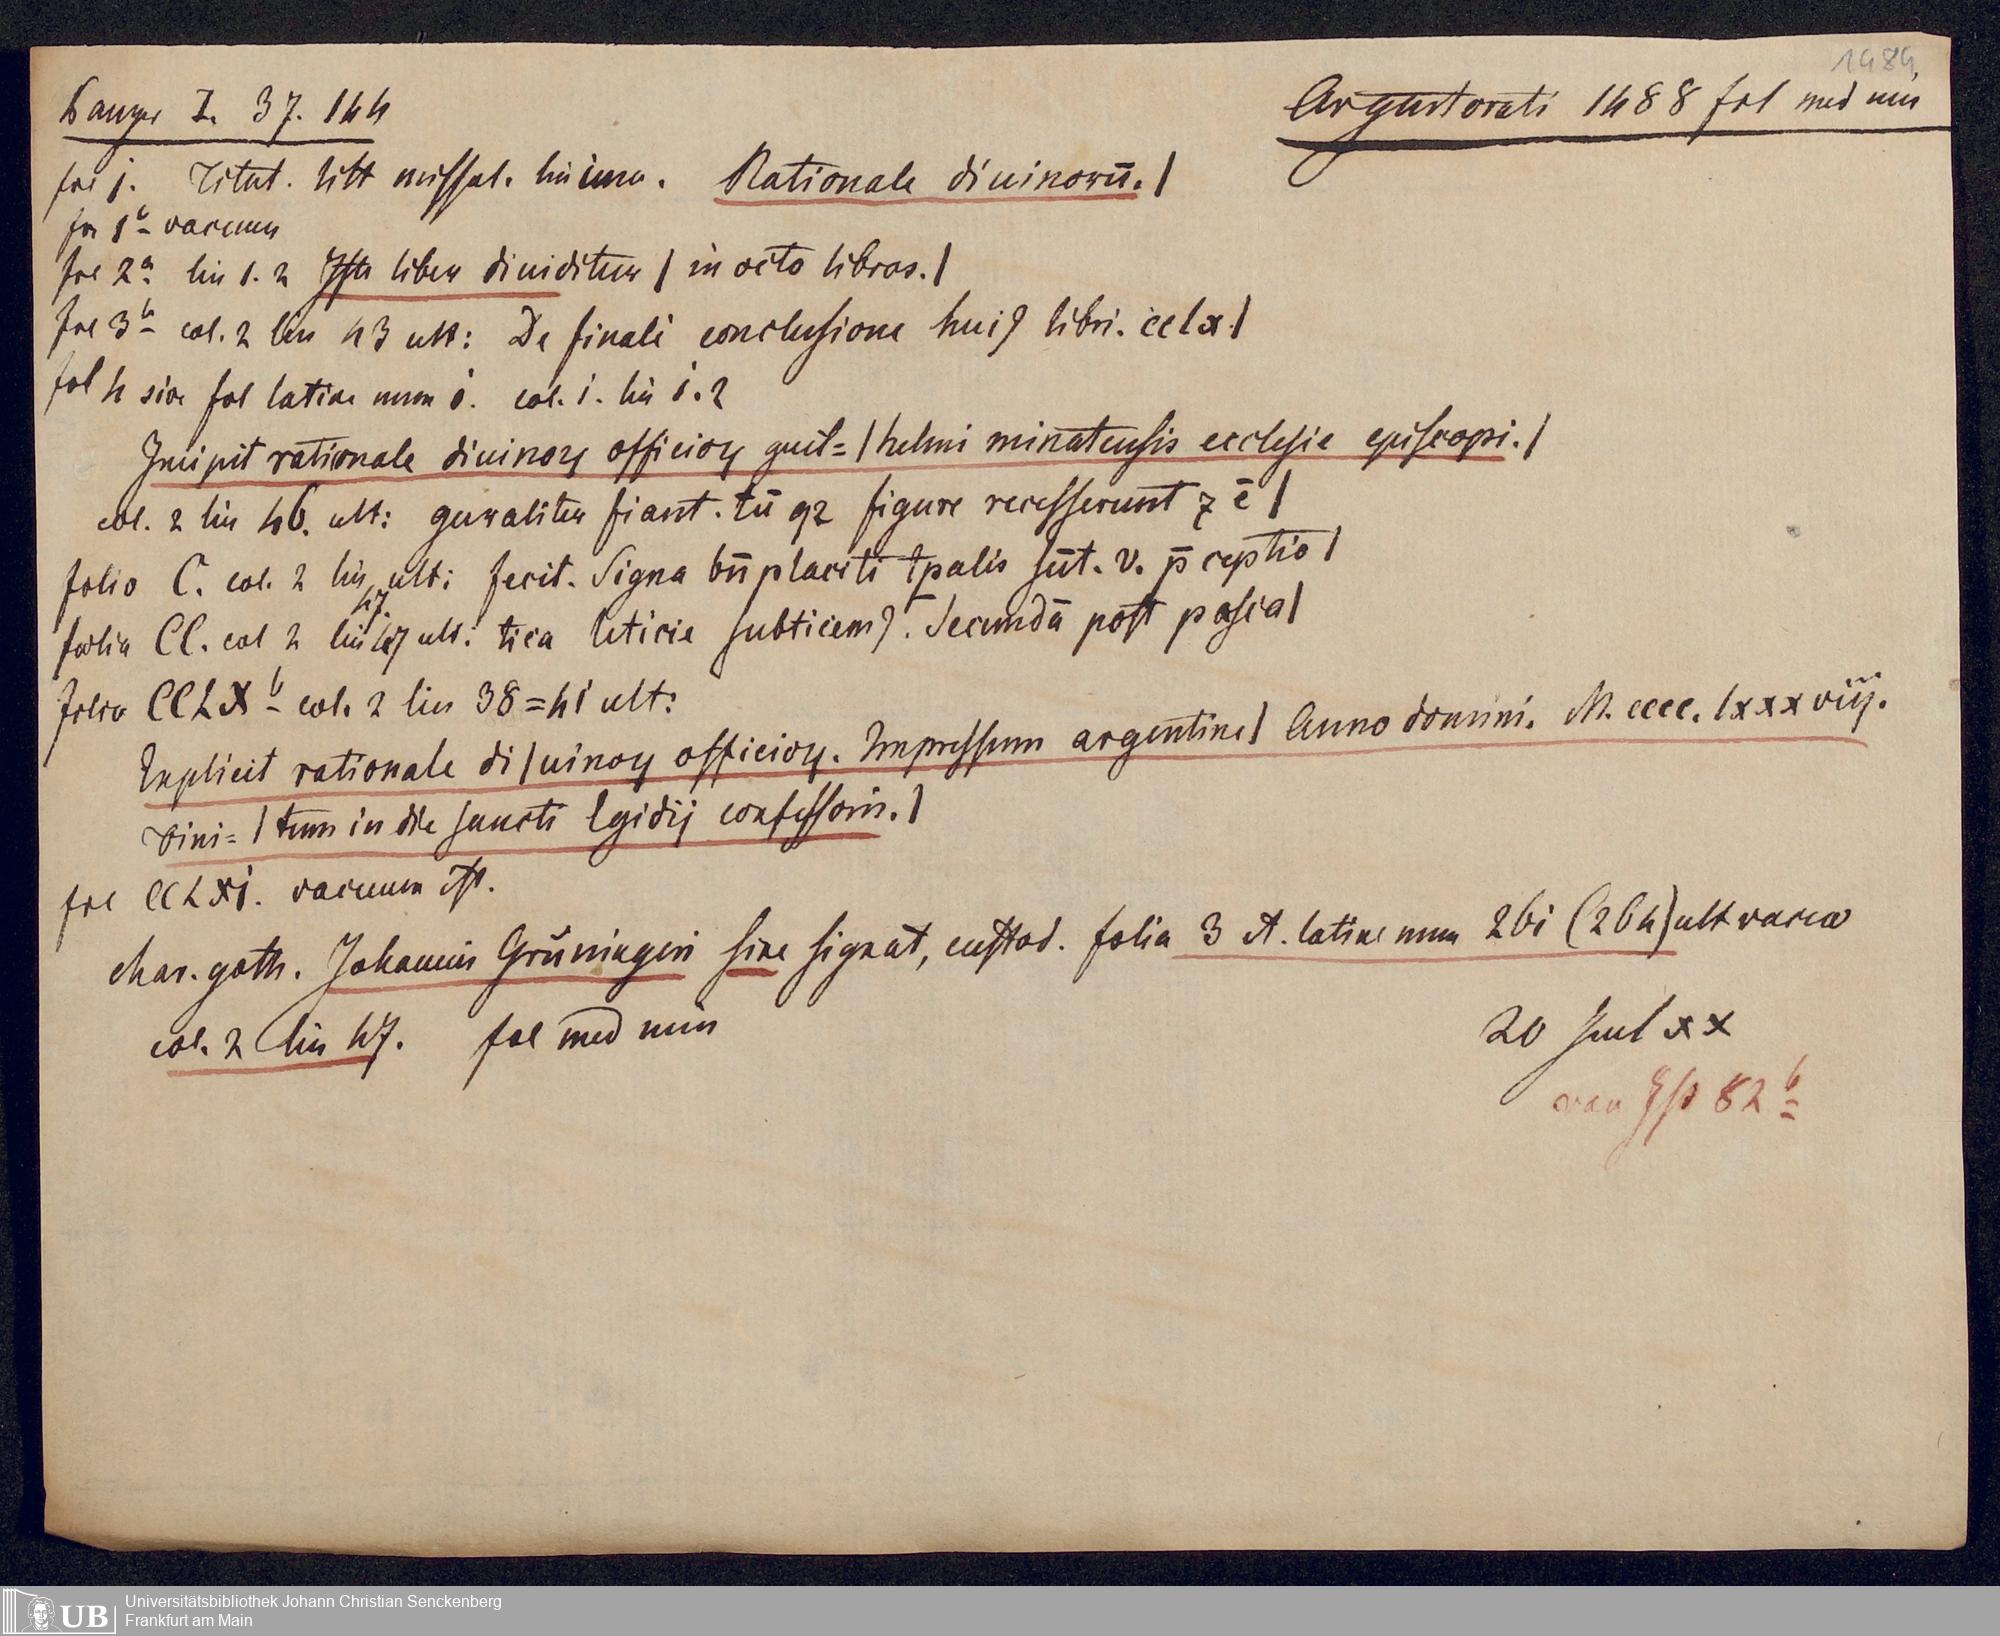 1484
Panzer I. 37. 144
Argentorati 1488 fol med min
fol j. Titul. litt missal. lin una. Rationale diuinorū. |
fol 1b vacuum
fol 2a lin 1. 2 Iste liber diuiditur | in octo libros. |
fol 3b col. 2 lin 43 ult: De finali conclusione huiꝰ libri. cclx. |
fol 4 sive fol latine num i. col. i. lin i. 2
Incipit rationale diuinoꝝ officioꝝ guil= | helmi minatensis ecclesie episcopi. |
col. 2 lin 46. ult: generaliter fiant. tū qꝛ figure recesserunt ⁊ ē |
folio C. col. 2 lin ult: fecit. Signa bn̄placiti tp̄alis sūt. v. p̄ceptio |
47.
folia CC. col 2 lin 47 ult: tica leticie subticemꝰ. Secundā post pasca |
folio CCLXb col. 2 lin 38=41 ult:
Explicit rationale di | uinoꝝ officioꝝ. Impressum argentine | Anno domini. M. cccc. lxxxviij.
Fini= | tum in die sancti Egidij confessoris. |
fol CCLXI. vacuum est.
char. goth. Johannis Grüningeri sine signat, custod. folia 3 et. latine num 261 (264) ult vacuo
col. 2 lin 47. fol med min
20 Jul xx
82b
Universitätsbibliothek Johann Christian Senckenberg
UB
Frankfurt am Main